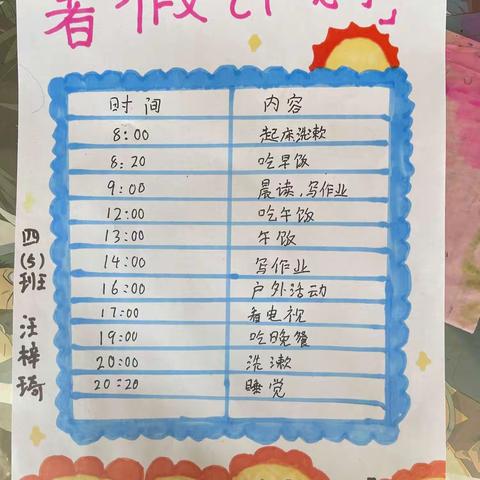 暑假计划
时间 内容
8:00 起床洗漱
8:20 吃早饭
9:00 晨读,写作业
12:00 吃午饭
13:00 午饭
14:00 写作业
16:00 户外活动
17:00 看电视
19:00 吃晚餐
20:00 洗漱
20:20 睡觉
四(5)班 汪梓琦